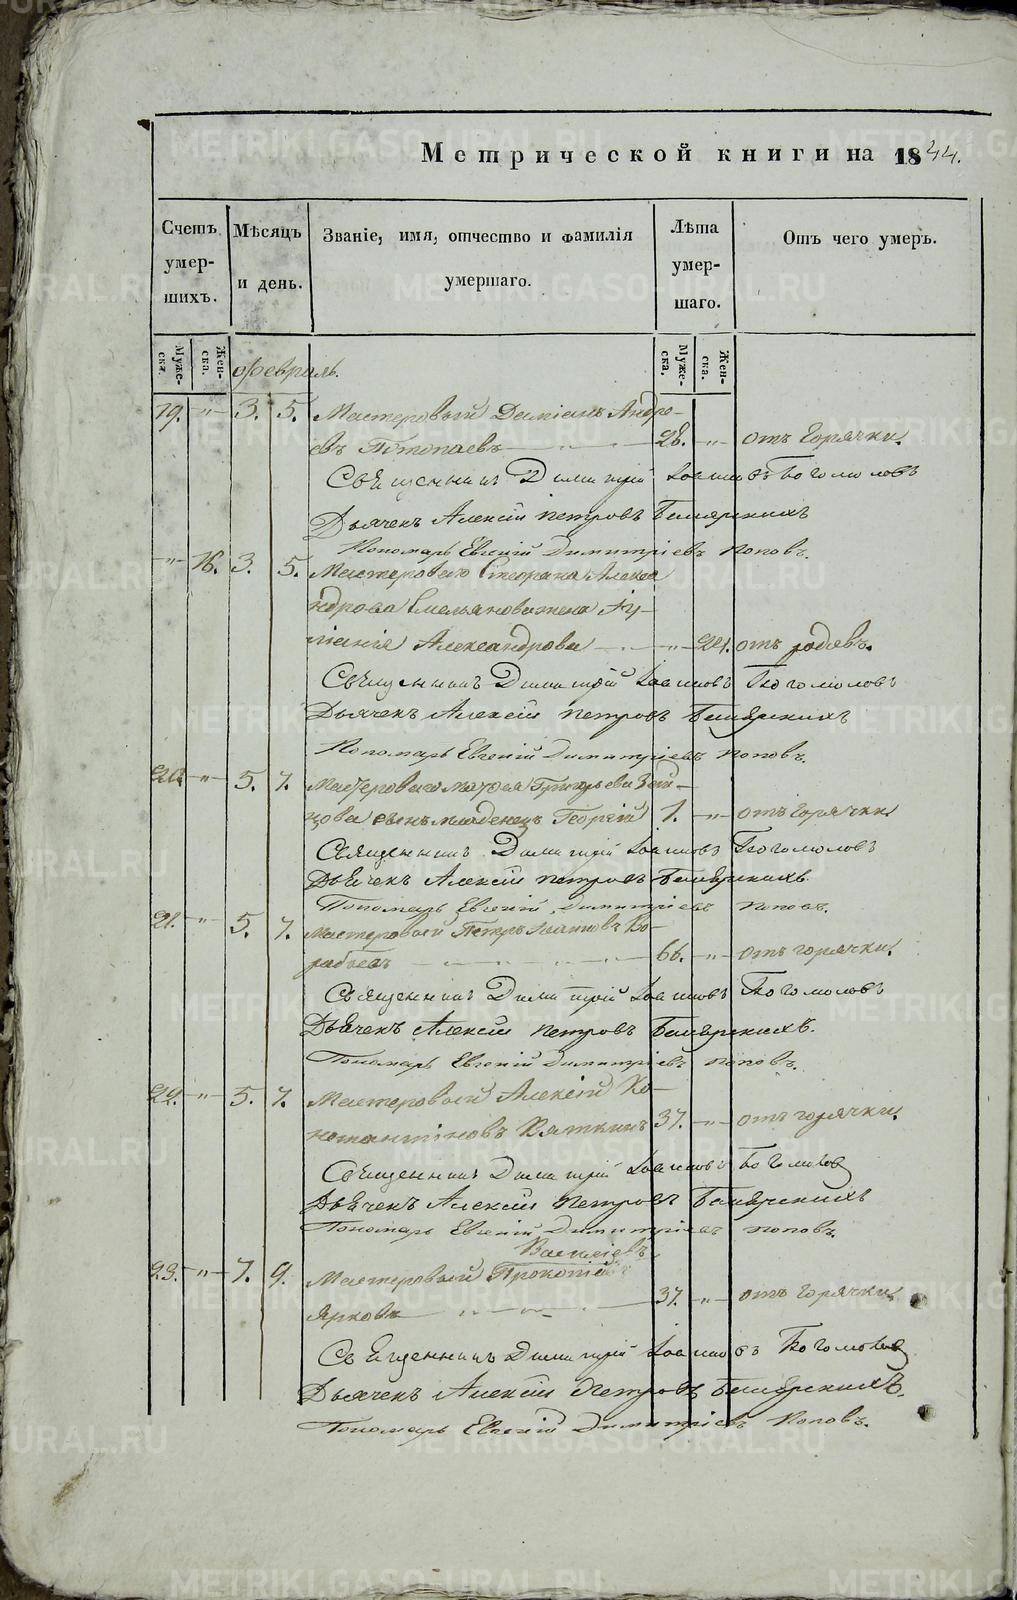 Метрической книги на 1844.
Счетъ умер-шихъ.
Мѣсяцъ и день.
Званіе, имя, отчество и фамилія умершаго.
Лѣта умер-шаго.
Отъ чего умеръ.
Муже-ска.
Жен-ска.
Муже-ска.
Жен-ска.
февраль.
19. -"- 3. 5. Мастеровый Даміанъ Андре-
евъ 28. -"- отъ горячки.
Священникъ Димитрій Іоанновъ Богомоловъ
Дьячекъ Алексій Петровъ
Пономарь Евгеній Димитріевъ Попов.
-"- 16. 3. 5. Мастероваго Стефана Алекса
ндрова Емельянова жена
Александрова -"- 24. отъ родовъ.
Священникъ Димитрій Іоанновъ Богомоловъ
Дьячекъ Алексій Петровъ
Пономарь Евгеній Димитріевъ Поповъ.
20. -"- 5. 7. Мастероваго Григорьева Зай-
цова сынъ младенецъ Георгій 1. -"- отъ горячки
Священникъ Димитрій Іоанновъ Богомоловъ
Дьячекъ Алексій Петровъ
Пономарь Евгеній Димитріевъ Поповъ.
21. -"- 5. 7. Мастеровый Петръ Іоанновъ Во-
робьевъ 66. -"- отъ горячки.
Священникъ Димитрій Іоанновъ Богомоловъ
Дьячекъ Алексій Петровъ
Пономарь Евгеній Димитріевъ Поповъ.
22. -"- 5. 7. Мастеровый Алексій Ко-
нстантиновъ Вяткинъ 37. -"- отъ горячки.
Священникъ Димитрій Іоанновъ Богомолов
Дьячекъ Алексій Петровъ
Пономарь Евгеній Димитріевъ Поповъ.
Васильевъ
23. -"- 7. 9. Мастеровый Прокопій
Ярковъ 37. -"- отъ горячки
Священникъ Димитрій Іоанновъ Богомолов
Дьячекъ Алексій Петровъ
Пономарь Евгеній Димитріевъ Поповъ.
METRIKI.GASO-URAL.RU